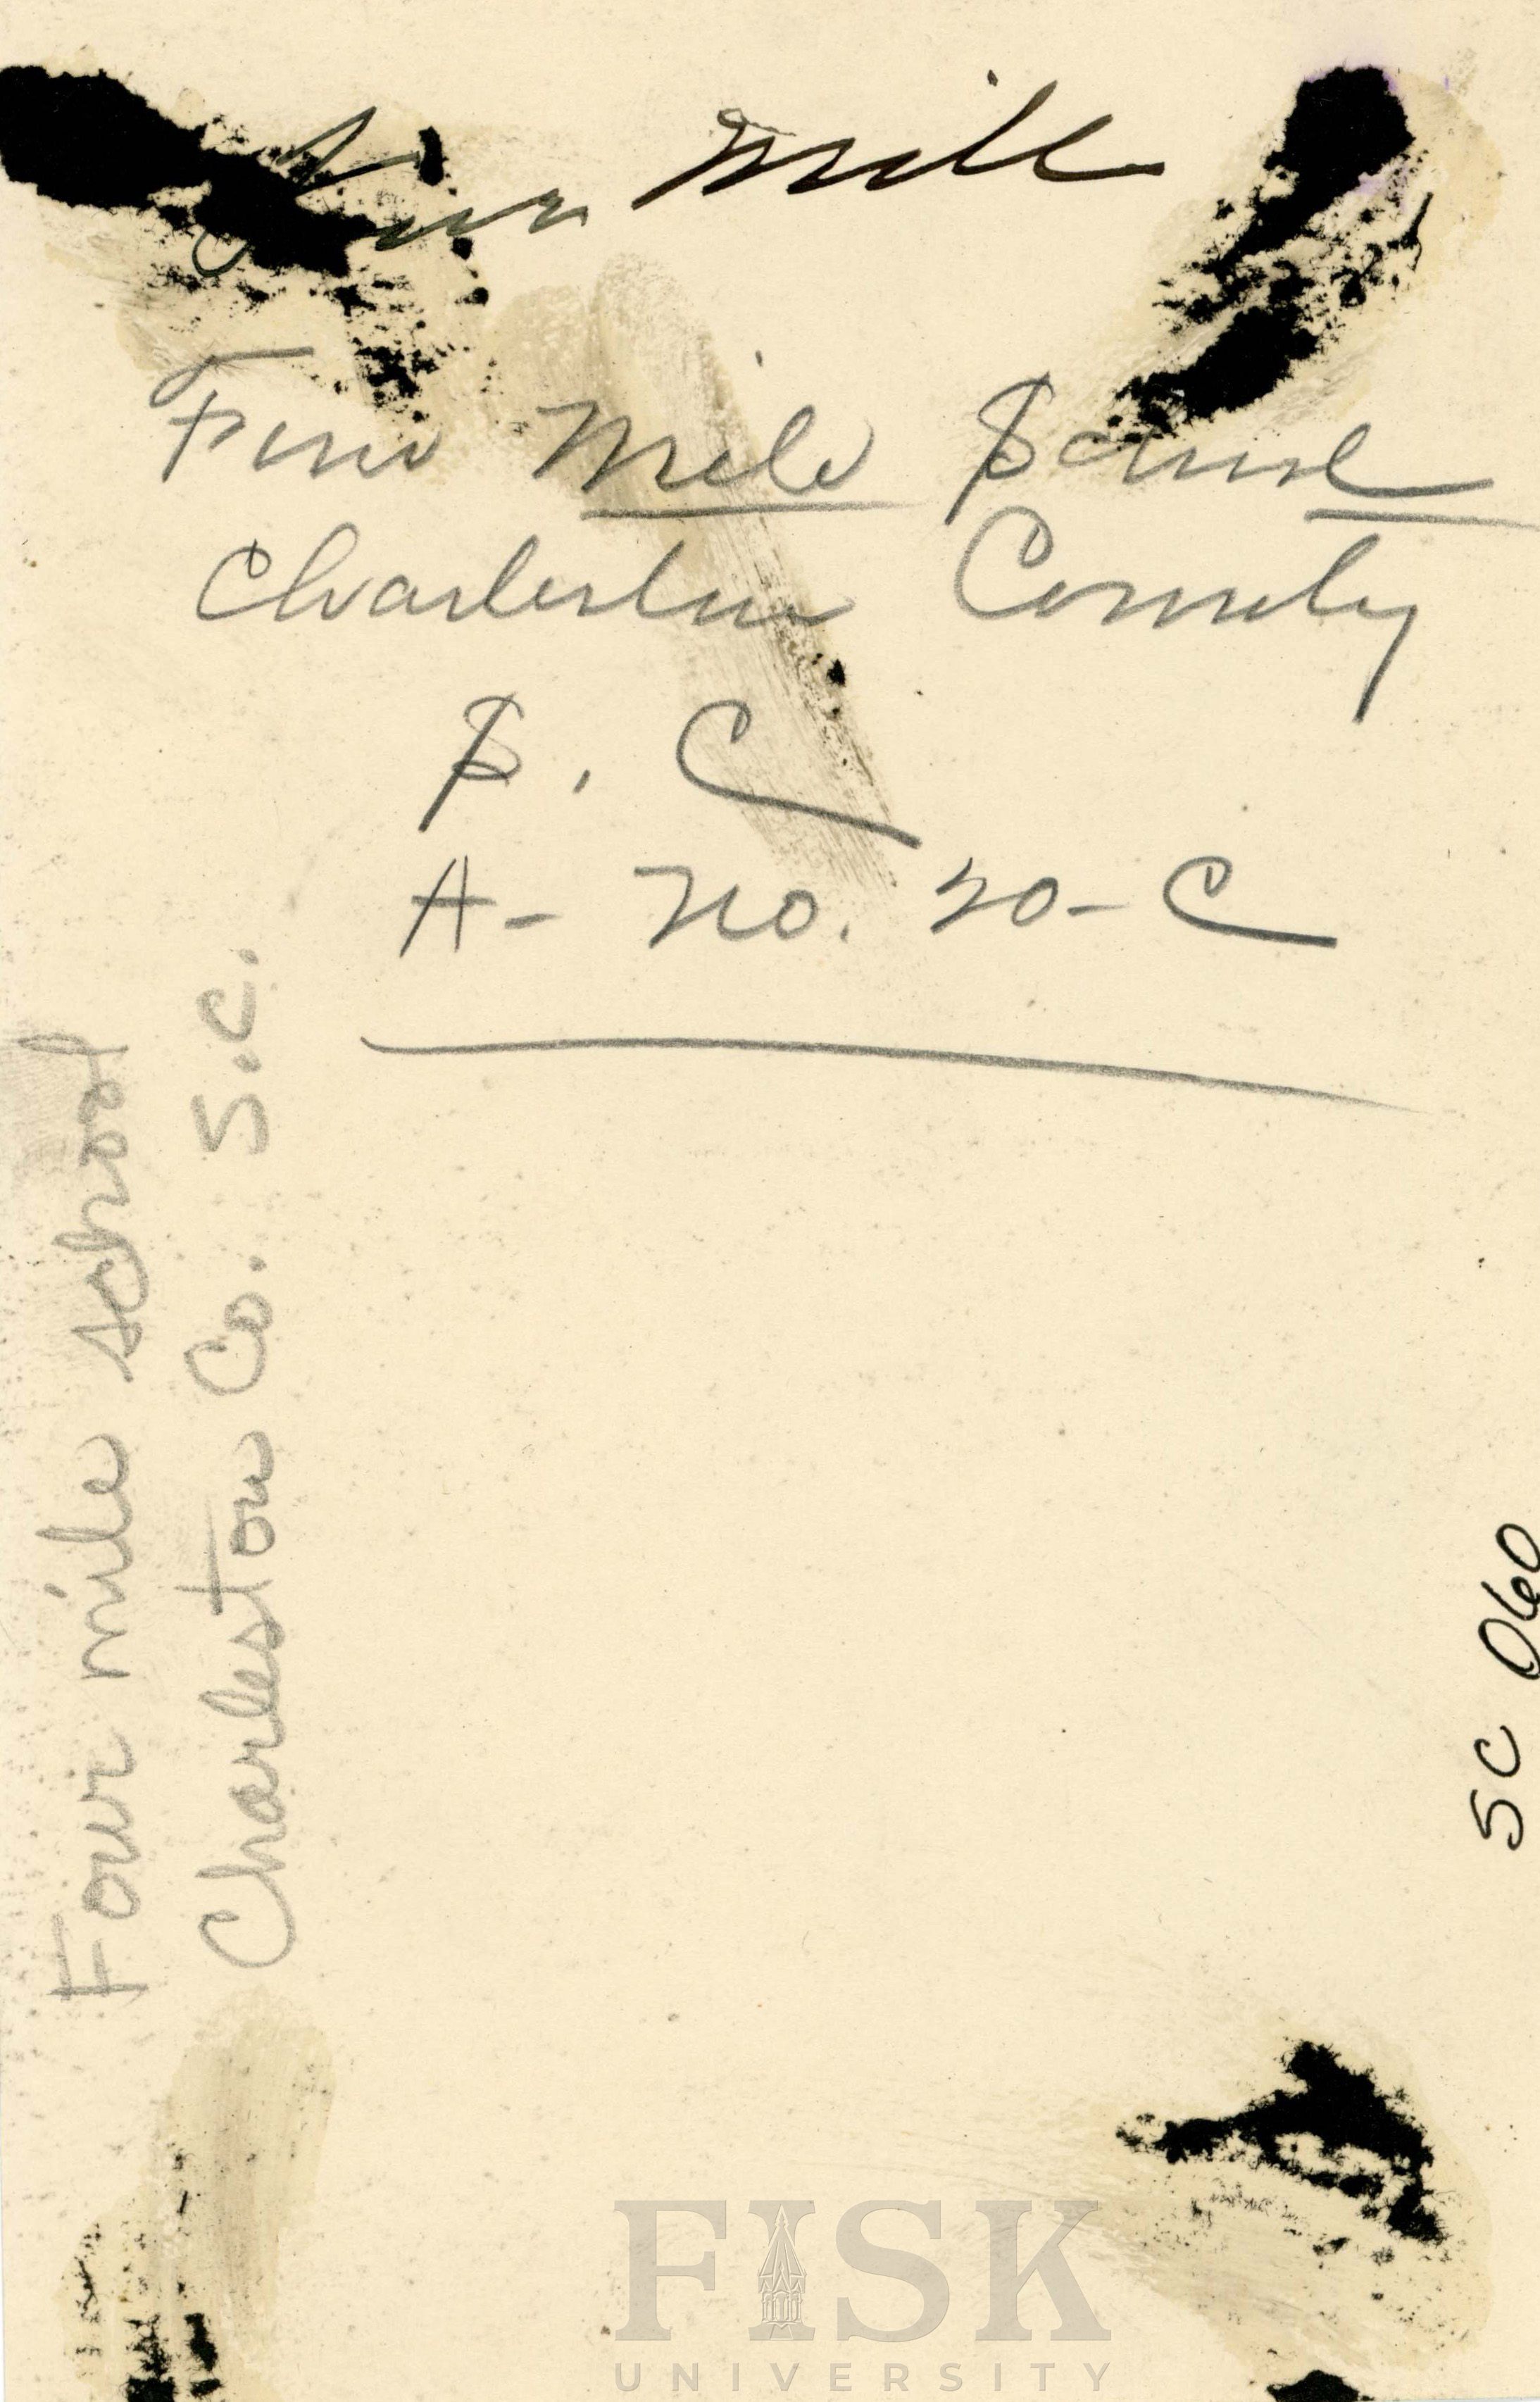 Four Mile
Four Mile School
Charleston County
S. C
A- No. 20-C
Four mile school
Charleston Co. S.C.
SC 060
FISK
UNIVERSITY